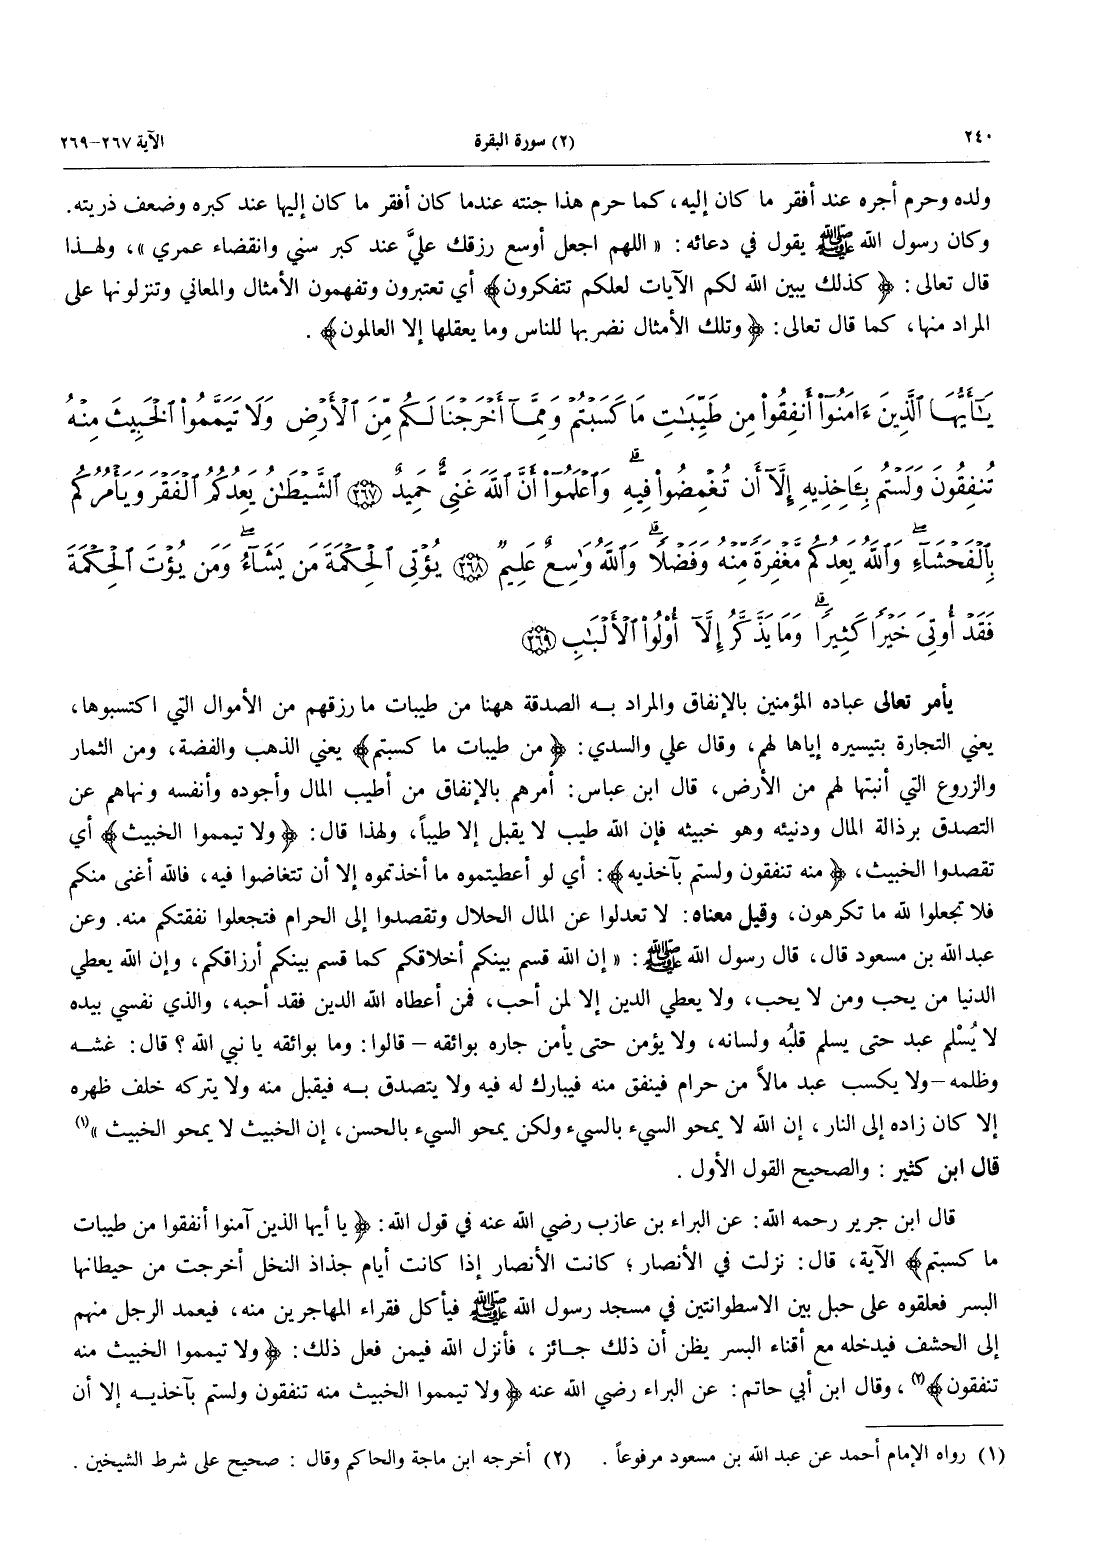 ٢٤٠ (٢) سورة البقرة الآية ٢٦٧-٢٦٩
ولده وحرم أجره عند أفقر ما كان إليه، كما حرم هذا جنته عندما كان أفقر ما كان إليها عند كبره وضعف ذريته.
وكان رسول الله ﷺ يقول في دعائه: « اللهم اجعل أوسع رزقك عليَّ عند كبر سني وانقضاء عمري »، ولهذا
قال تعالى: ﴿ كذلك يبين الله لكم الآيات لعلكم تتفكرون﴾ أي تعتبرون وتفهمون الأمثال والمعاني وتنزلونها على
المراد منها، كما قال تعالى: ﴿ وتلك الأمثال نضربها للناس وما يعقلها إلا العالمون﴾ .
يَـٰٓأَيُّهَا ٱلَّذِينَ ءَامَنُوٓا۟ أَنفِقُوا۟ مِن طَيِّبَـٰتِ مَا كَسَبْتُمْ وَمِمَّآ أَخْرَجْنَا لَكُم مِّنَ ٱلْأَرْضِ وَلَا تَيَمَّمُوا۟ ٱلْخَبِيثَ مِنْهُ
تُنفِقُونَ وَلَسْتُم بِـَٔاخِذِيهِ إِلَّآ أَن تُغْمِضُوا۟ فِيهِ ۚ وَٱعْلَمُوٓا۟ أَنَّ ٱللَّهَ غَنِىٌّ حَمِيدٌ ﴿٢٦٧﴾ ٱلشَّيْطَـٰنُ يَعِدُكُمُ ٱلْفَقْرَ وَيَأْمُرُكُم
بِٱلْفَحْشَآءِ ۖ وَٱللَّهُ يَعِدُكُم مَّغْفِرَةً مِّنْهُ وَفَضْلًا ۗ وَٱللَّهُ وَٰسِعٌ عَلِيمٌ ﴿٢٦٨﴾ يُؤْتِى ٱلْحِكْمَةَ مَن يَشَآءُ ۚ وَمَن يُؤْتَ ٱلْحِكْمَةَ
فَقَدْ أُوتِىَ خَيْرًا كَثِيرًا ۗ وَمَا يَذَّكَّرُ إِلَّآ أُو۟لُوا۟ ٱلْأَلْبَـٰبِ ﴿٢٦٩﴾
يأمر تعالى عباده المؤمنين بالإنفاق والمراد بـه الصدقة ههنا من طيبات ما رزقهم من الأموال التي اكتسبوها،
يعني التجارة بتيسيره إياها لهم، وقال علي والسدي: ﴿ من طيبات ما كسبتم﴾ يعني الذهب والفضة، ومن الثمار
والزروع التي أنبتها لهم من الأرض، قال ابن عباس: أمرهم بالإنفاق من أطيب المال وأجوده وأنفسه ونهاهم عن
التصدق برذالة المال ودنيئه وهو خبيثه فإن الله طيب لا يقبل إلا طيباً، ولهذا قال: ﴿ ولا تيمموا الخبيث﴾ أي
تقصدوا الخبيث، ﴿ منه تنفقون ولستم بآخذيه﴾: أي لو أعطيتموه ما أخذتموه إلا أن تتغاضوا فيه، فالله أغنى منكم
فلا تجعلوا لله ما تكرهون، وقيل معناه: لا تعدلوا عن المال الحلال وتقصدوا إلى الحرام فتجعلوا نفقتكم منه. وعن
عبدالله بن مسعود قال، قال رسول الله ﷺ : « إن الله قسم بينكم أخلاقكم كما قسم بينكم أرزاقكم، وإن الله يعطي
الدنيا من يحب ومن لا يحب، ولا يعطي الدين إلا لمن أحب، فمن أعطاه الله الدين فقد أحبه، والذي نفسي بيده
لا يُسْلم عبد حتى يسلم قلبُه ولسانه، ولا يؤمن حتى يأمن جاره بوائقه – قالوا: وما بوائقه يا نبي الله ؟ قال: غشه
وظلمه –ولا يكسب عبد مالاً من حرام فينفق منه فيبارك له فيه ولا يتصدق بـه فيقبل منه ولا يتركه خلف ظهره
إلا كان زاده إلى النار، إن الله لا يمحو السيء بالسيء ولكن يمحو السيء بالحسن، إن الخبيث لا يمحو الخبيث »(١)
قال ابن كثير : والصحيح القول الأول .
قال ابن جرير رحمه الله: عن البراء بن عازب رضي الله عنه في قول الله: ﴿ يا أيها الذين آمنوا أنفقوا من طيبات
ما كسبتم﴾ الآية، قال: نزلت في الأنصار؛ كانت الأنصار إذا كانت أيام جذاذ النخل أخرجت من حيطانها
البسر فعلقوه على حبل بين الاسطوانتين في مسجد رسول الله ﷺ فيأكل فقراء المهاجرين منه، فيعمد الرجل منهم
إلى الحشف فيدخله مع أقناء البسر يظن أن ذلك جـائز، فأنزل الله فيمن فعل ذلك: ﴿ ولا تيمموا الخبيث منه
تنفقون﴾(٢) ، وقال ابن أبي حاتم: عن البراء رضي الله عنه ﴿ ولا تيمموا الخبيث منه تنفقون ولستم بآخذيـه إلا أن
(١) رواه الإمام أحمد عن عبد الله بن مسعود مرفوعاً . (٢) أخرجه ابن ماجة والحاكم وقال : صحيح على شرط الشيخين .